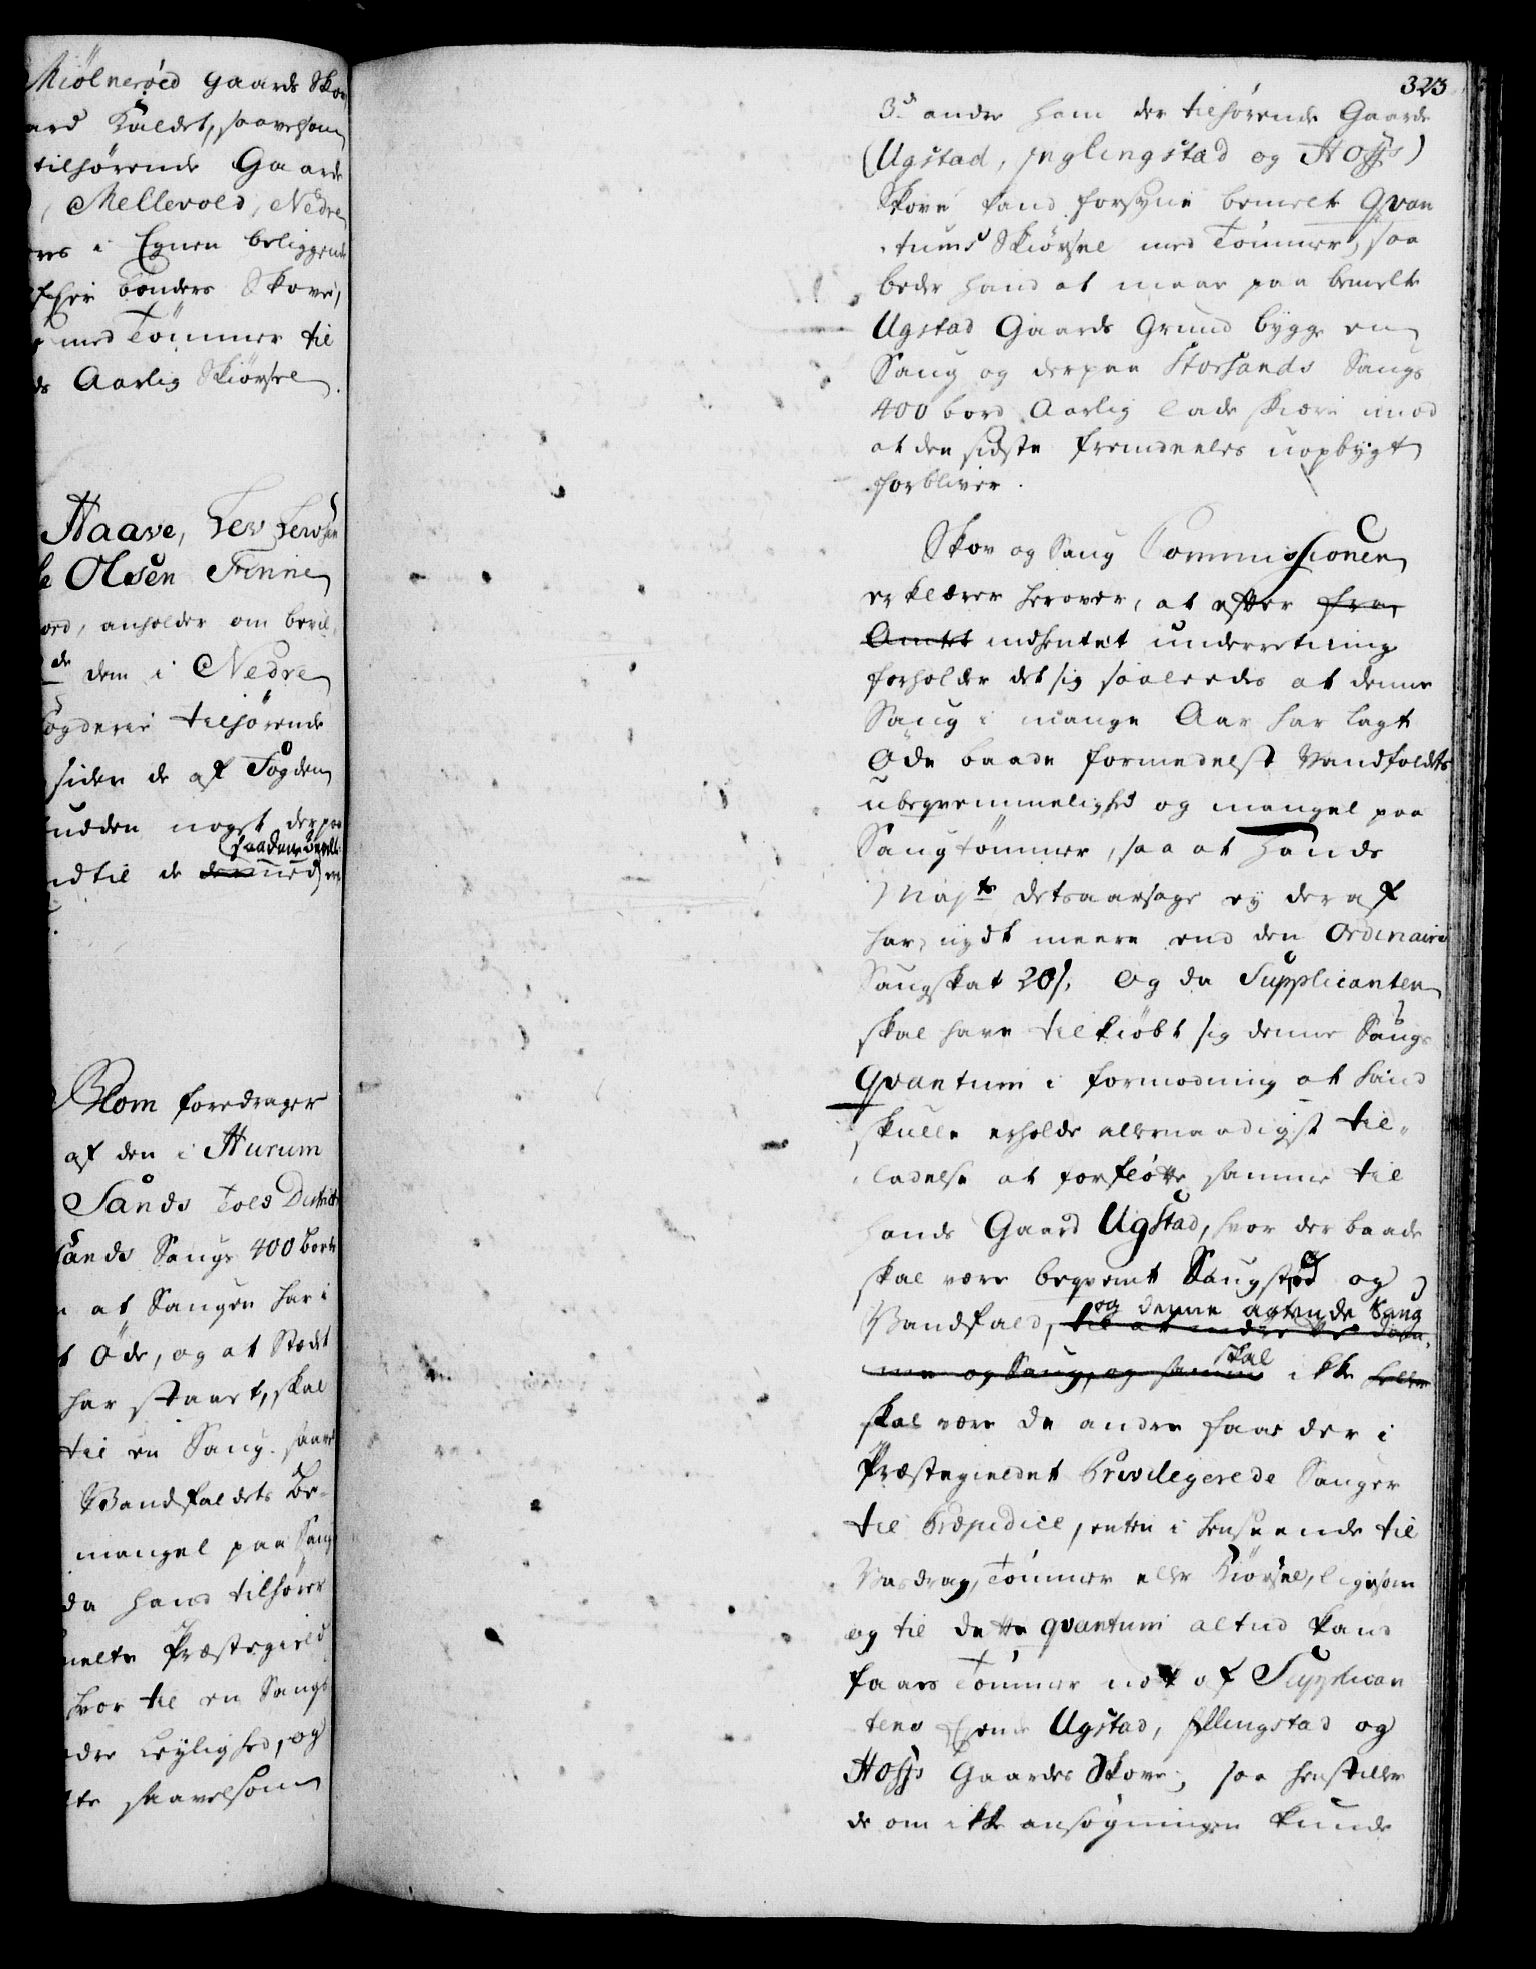 Miölneröed gaards Skov
ard Kaldet, saavelsom
tilhörende Gaarde
, Mellevold, Nedre
res i Egnen beliggende
Bönders Skove,
med Tömmer til
ds Aarlig Skiörsel.
Haave, Lev Levsen
le Olsen Finne
ord, anholder om bevil
de dem i Nedre
ogderie tilhörende
siden de af Fogden
udden noget derpaa
saadan bevill:
ndtil de dermed
Blom foredrager
af den i Hurum
Sands Told District
sands Saugs 400 borde
at Saugen har i
t Öde, og at Stædet
har staaet, skal
til en Saug. saavel
Vandfaldets Be-
mangel paa Saug
da hand tilhörer
melte Præstegield
hvor til en Saugs
dre Leylighed, og
te saavelsom
323
3de andre ham der tilhörende Gaarde
(Ugstad, Jnglingstad og Hoffs)
Skove kand forsyne bemelte Qvan
tums Skiörsel med Tömmer, saa
beder hand at maae paa bemelte
Ugstad Gaards Grund bygge en
Saug og derpaa Storsands Saugs
400 bord Aarlig lade skiære imod
at den sidste fremdeeles uopbygt
forbliver.
Skov og Saug Commissionen
erklærer herover, at efter fra
Amtet indhentet underretning
forholder det sig saaledes at denne
Saug i mange Aar har lagt
Öde baade formedelst Vandfaldets
ubeqvemmelighed og mangel paa
Saugtömmer, saa at Hands
Mayts. detsaarsage ey deraf
har nydt meere end den Ordinaire
Saugskat 20/. Og da Supplicanten
skal have tilkiöbt sig denne Saugs
Qvantum i formodning at hand
skulle erholde allernaadigst til-
ladelse at forflötte samme til
hands Gaard Ugstad, hvor der baade
skal være beqvemt Saugsted og
og denne agtende Saug
Vandfald, til at indrette
skal
og Saug, og samme ikke heller
skal være de andre faae der i
Præstegieldet Privilegerede Sauger
til Præjudice, enten i henseende til
Vasdrag, Tömmer eller Kiörsel, ligesom
og til dette qvantum altiid kand
faaes Tömmer nok af Supplican
tens Egende Ugstad, Ellingstad og
Hoffs Gaardes Skove, saa henstiller
de om ikke ansögningen kunde